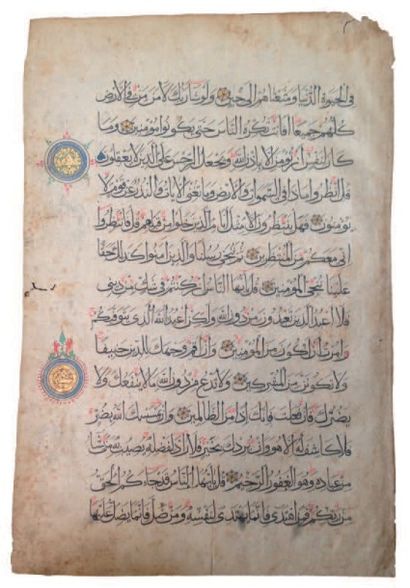 في الحيوة الدنيا ومتعناهم الى حين ولو شاء ربك لامن من في الارض
كلهم جميعا افانت تكره الناس حتى يكونوا مؤمنين وما
كان لنفس ان تؤمن الا باذن الله ويجعل الرجس على الذين لا يعقلون
قل انظروا ماذا في السموات والارض وما تغني الايات والنذر عن قوم لا
يؤمنون فهل ينتظرون الا مثل ايام الذين خلوا من قبلهم قل فانتظروا
اني معكم من المنتظرين ثم ننجي رسلنا والذين امنوا كذلك حقا
علينا ننجي المؤمنين قل يايها الناس ان كنتم في شك من ديني
فلا اعبد الذين تعبدون من دون الله ولكن اعبد الله الذي يتوفيكم
وامرت ان اكون من المؤمنين وان اقم وجهك للدين حنيفا
ولا تكونن من المشركين ولا تدع من دون الله ما لا ينفعك ولا
يضرك فان فعلت فانك اذا من الظالمين وان يمسسك الله بضر
فلا كاشف له الا هو وان يردك بخير فلا راد لفضله يصيب به من يشا
من عباده وهو الغفور الرحيم قل يايها الناس قد جاءكم الحق
من ربكم فمن اهتدى فانما يهتدي لنفسه ومن ضل فانما يضل عليها